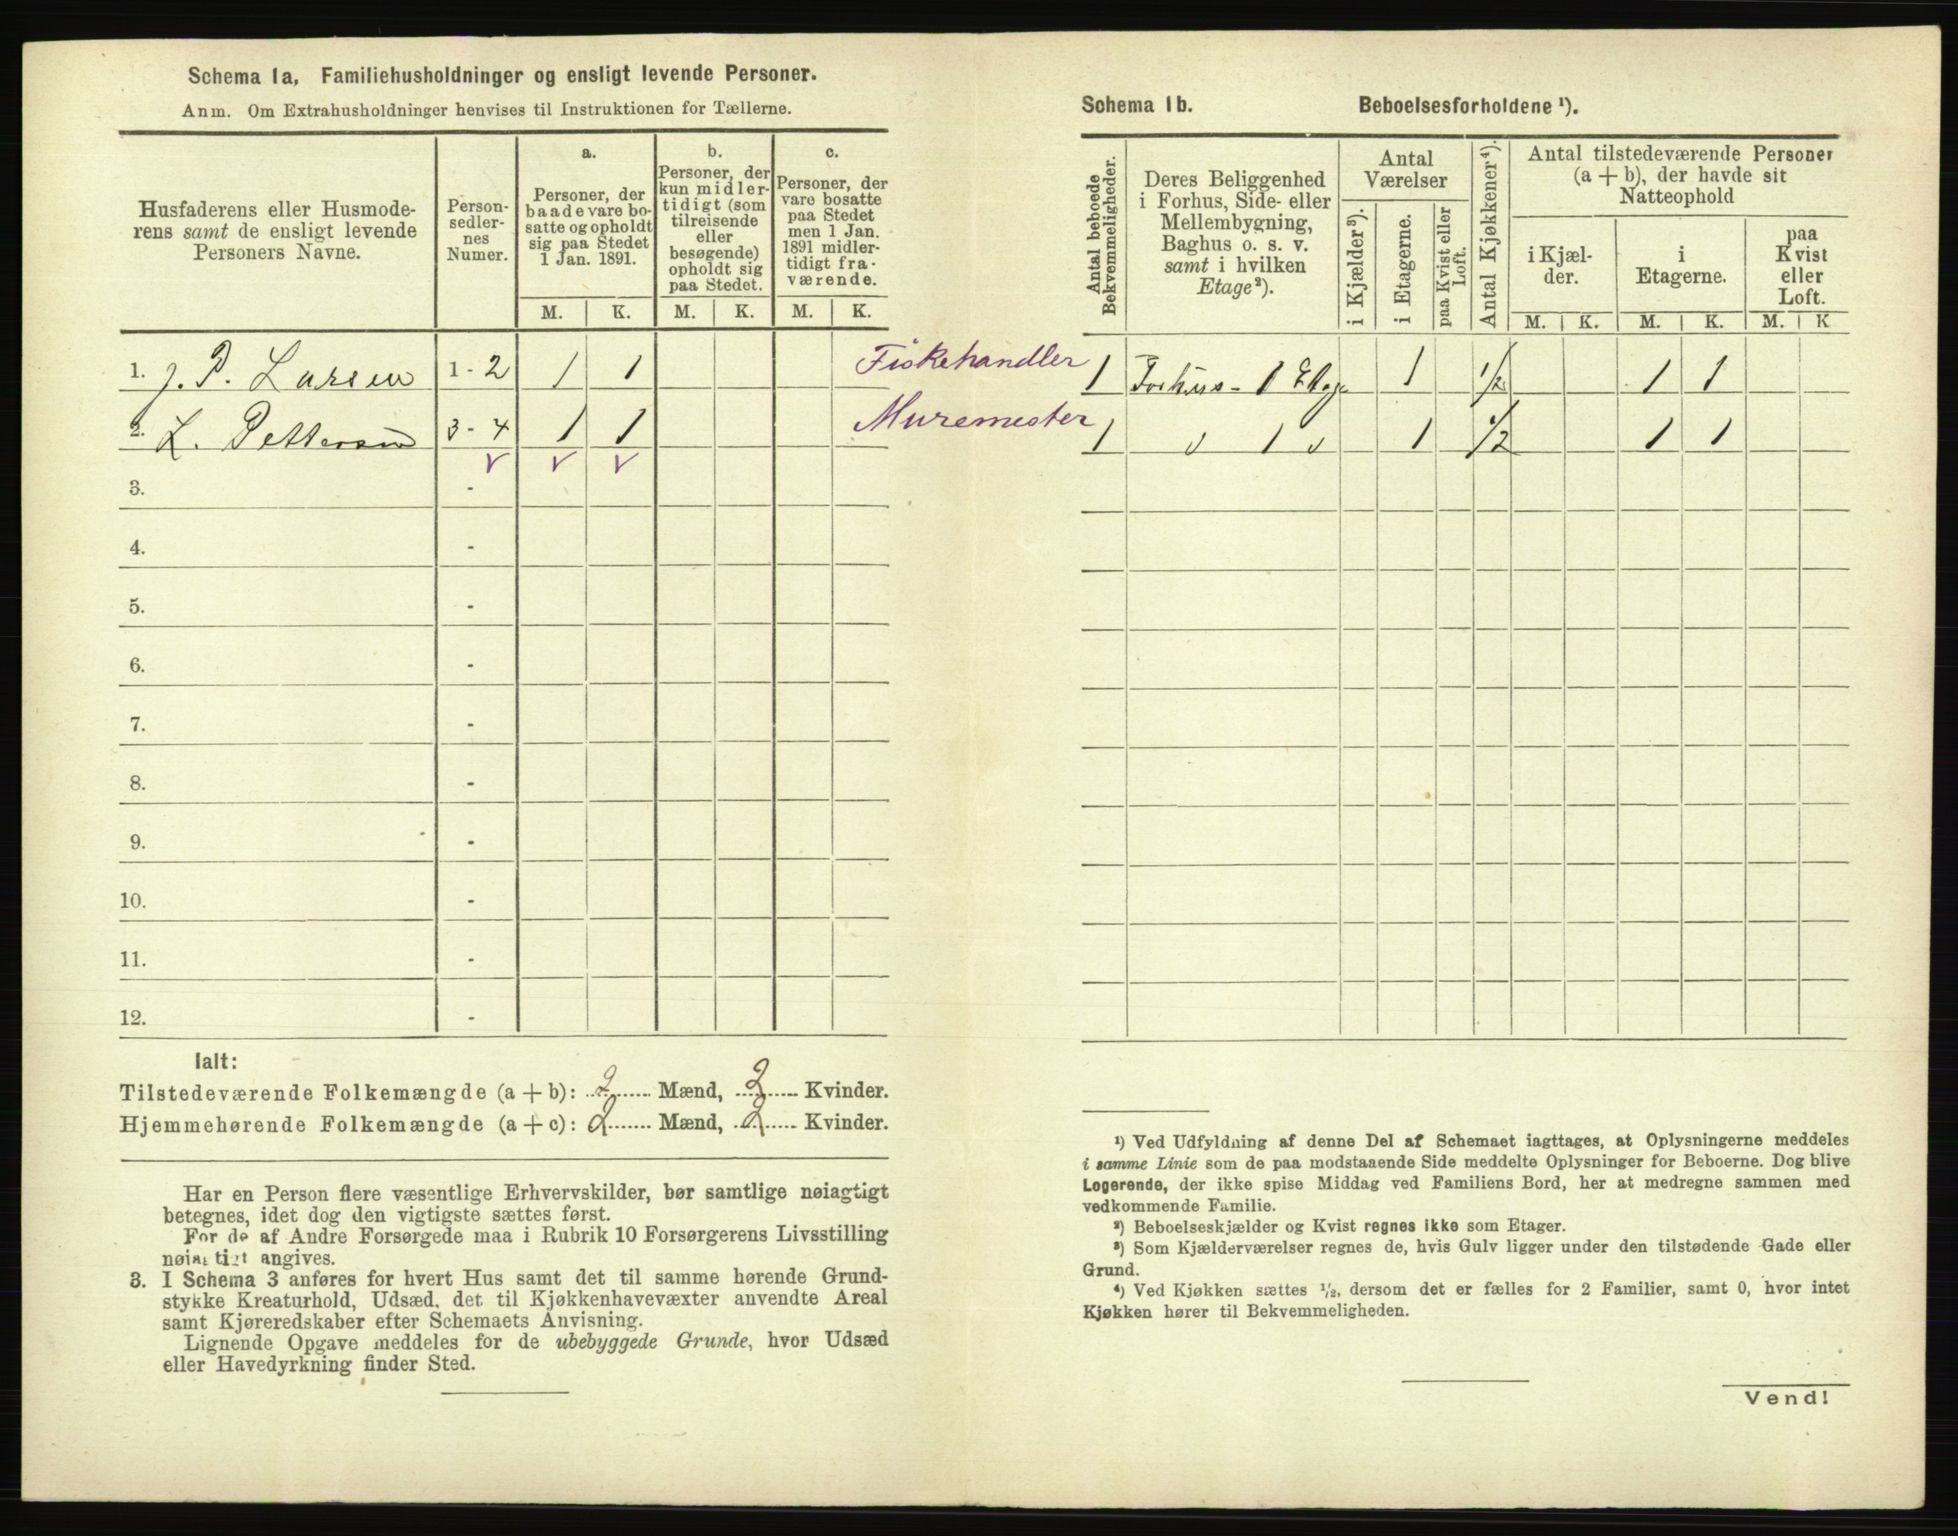 Schema 1a, Familiehusholdninger og ensligt levende Personer.
Anm. Om Extrahusholdninger henvises til Instruktionen for Tællerne.
Husfaderens eller Husmode-
rens samt de ensligt levende
Personers Navne.
Person-
sedler-
nes
Numer.
a.
Personer, der
baade vare bo-
satte og opholdt
sig paa Stedet
1 Jan. 1891.
b.
Personer, der
kun midler-
tidigt (som
tilreisende
eller
besøgende)
opholdt sig
paa Stedet.
c.
Personer, der
vare bosatte
paa Stedet
men 1 Jan.
1891 midler-
tidigt fra-
værende.
M. K. M. K. M. K.
1. J. P. Larsen 1 - 2 1 1 Fiskehandler
2. L. Pettersen 3 - 4 1 1 Muremester
v v v
3. -
4. -
5. -
6. -
7. -
8. -
9. -
10. -
11. -
12. -
Ialt:
Tilstedeværende Folkemængde (a + b): 2 Mænd, 2 Kvinder.
Hjemmehørende Folkemængde (a + c): 2 Mænd, 2 Kvinder.
Har en Person flere væsentlige Erhvervskilder, bør samtlige nøiagtigt
betegnes, idet dog den vigtigste sættes først.
For de af Andre Forsørgede maa i Rubrik 10 Forsørgerens Livsstilling
nøiagtigt angives.
3. I Schema 3 anføres for hvert Hus samt det til samme hørende Grund-
stykke Kreaturhold, Udsæd, det til Kjøkkenhavevæxter anvendte Areal
samt Kjøreredskaber efter Schemaets Anvisning.
Lignende Opgave meddeles for de ubebyggede Grunde, hvor Udsæd
eller Havedyrkning finder Sted.
Schema 1b. Beboelsesforholdene ¹).
Antal beboede
Bekvemmeligheder.
Deres Beliggenhed
i Forhus, Side- eller
Mellembygning,
Baghus o. s. v.
samt i hvilken
Etage²).
Antal
Værelser
i Kjælder³).
i Etagerne.
paa Kvist eller
Loft.
Antal Kjøkkener⁴).
Antal tilstedeværende Personer
(a + b), der havde sit
Natteophold
i Kjæl-
der.
i
Etagerne.
paa
Kvist
eller
Loft.
M. K. M. K. M. K
1 Forhus - 1 Etage 1 1/2 1 1
1 " 1 " 1 1/2 1 1
¹) Ved Udfyldning af denne Del af Schemaet iagttages, at Oplysningerne meddeles
i samme Linie som de paa modstaaende Side meddelte Oplysninger for Beboerne. Dog blive
Logerende, der ikke spise Middag ved Familiens Bord, her at medregne sammen med
vedkommende Familie.
²) Beboelseskjælder og Kvist regnes ikke som Etager.
³) Som Kjælderværelser regnes de, hvis Gulv ligger under den tilstødende Gade eller
Grund.
⁴) Ved Kjøkken sættes ½, dersom det er fælles for 2 Familier, samt 0, hvor intet
Kjøkken hører til Bekvemmeligheden.
Vend!